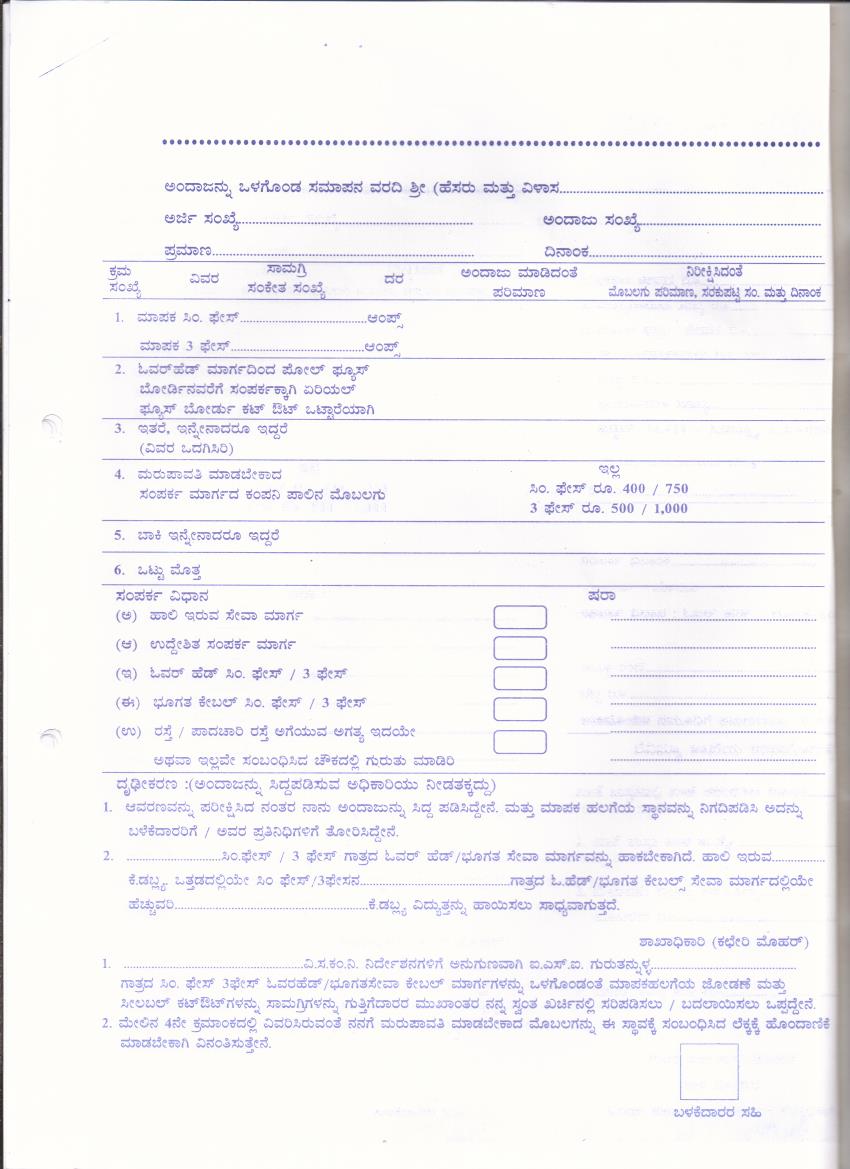 ಅಂದಾಜನ್ನು ಒಳಗೊಂಡ ಸಮಾಪನ ವರದಿ ಶ್ರೀ (ಹೆಸರು ಮತ್ತು ವಿಳಾಸ....................
ಅರ್ಜಿ ಸಂಖ್ಯೆ.................... ಅಂದಾಜು ಸಂಖ್ಯೆ....................
ಪ್ರಮಾಣ.................... ದಿನಾಂಕ....................
ಕ್ರಮ ಸಾಮಗ್ರಿ ಅಂದಾಜು ಮಾಡಿದಂತೆ ನಿರೀಕ್ಷಿಸಿದಂತೆ
ಸಂಖ್ಯೆ ವಿವರ ಸಂಕೇತ ಸಂಖ್ಯೆ ದರ ಪರಿಮಾಣ ಮೊಬಲಗು ಪರಿಮಾಣ, ಸರಕುಪಟ್ಟಿ ಸಂ. ಮತ್ತು ದಿನಾಂಕ
1. ಮಾಪಕ ಸಿಂ. ಫೇಸ್....................ಆಂಪ್ಸ್
ಮಾಪಕ 3 ಫೇಸ್....................ಆಂಪ್ಸ್
2. ಓವರ್‌ಹೆಡ್ ಮಾರ್ಗದಿಂದ ಪೋಲ್ ಫ್ಯೂಸ್
ಬೋರ್ಡಿನವರೆಗೆ ಸಂಪರ್ಕಕ್ಕಾಗಿ ಏರಿಯಲ್
ಫ್ಯೂಸ್ ಬೋರ್ಡು ಕಟ್ ಔಟ್ ಒಟ್ಟಾರೆಯಾಗಿ
3. ಇತರೆ, ಇನ್ನೇನಾದರೂ ಇದ್ದರೆ
(ವಿವರ ಒದಗಿಸಿರಿ)
4. ಮರುಪಾವತಿ ಮಾಡಬೇಕಾದ ಇಲ್ಲ
ಸಂಪರ್ಕ ಮಾರ್ಗದ ಕಂಪನಿ ಪಾಲಿನ ಮೊಬಲಗು ಸಿಂ. ಫೇಸ್ ರೂ. 400 / 750
3 ಫೇಸ್ ರೂ. 500 / 1,000
5. ಬಾಕಿ ಇನ್ನೇನಾದರೂ ಇದ್ದರೆ
6. ಒಟ್ಟು ಮೊತ್ತ
ಸಂಪರ್ಕ ವಿಧಾನ ಷರಾ
(ಅ) ಹಾಲಿ ಇರುವ ಸೇವಾ ಮಾರ್ಗ ....................
(ಆ) ಉದ್ದೇಶಿತ ಸಂಪರ್ಕ ಮಾರ್ಗ ....................
(ಇ) ಓವರ್ ಹೆಡ್ ಸಿಂ. ಫೇಸ್ / 3 ಫೇಸ್ ....................
(ಈ) ಭೂಗತ ಕೇಬಲ್ ಸಿಂ. ಫೇಸ್ / 3 ಫೇಸ್ ....................
(ಉ) ರಸ್ತೆ / ಪಾದಚಾರಿ ರಸ್ತೆ ಅಗೆಯುವ ಅಗತ್ಯ ಇದೆಯೇ ....................
ಅಥವಾ ಇಲ್ಲವೇ ಸಂಬಂಧಿಸಿದ ಚೌಕದಲ್ಲಿ ಗುರುತು ಮಾಡಿರಿ ....................
ದೃಢೀಕರಣ :(ಅಂದಾಜನ್ನು ಸಿದ್ದಪಡಿಸುವ ಅಧಿಕಾರಿಯು ನೀಡತಕ್ಕದ್ದು)
1. ಆವರಣವನ್ನು ಪರೀಕ್ಷಿಸಿದ ನಂತರ ನಾನು ಅಂದಾಜುನ್ನು ಸಿದ್ದ ಪಡಿಸಿದ್ದೇನೆ. ಮತ್ತು ಮಾಪಕ ಹಲಗೆಯ ಸ್ಥಾನವನ್ನು ನಿಗದಿಪಡಿಸಿ ಅದನ್ನು
ಬಳಕೆದಾರರಿಗೆ / ಅವರ ಪ್ರತಿನಿಧಿಗಳಿಗೆ ತೋರಿಸಿದ್ದೇನೆ.
2. ....................ಸಿಂ.ಫೇಸ್ / 3 ಫೇಸ್ ಗಾತ್ರದ ಓವರ್ ಹೆಡ್/ಭೂಗತ ಸೇವಾ ಮಾರ್ಗವನ್ನು ಹಾಕಬೇಕಾಗಿದೆ. ಹಾಲಿ ಇರುವ....................
ಕೆ.ಡಬ್ಲ್ಯು. ಒತ್ತಡದಲ್ಲಿಯೇ ಸಿಂ ಫೇಸ್/3ಫೇಸನ....................ಗಾತ್ರದ ಓ.ಹೆಡ್/ಭೂಗತ ಕೇಬಲ್ಸ್ ಸೇವಾ ಮಾರ್ಗದಲ್ಲಿಯೇ
ಹೆಚ್ಚುವರಿ....................ಕೆ.ಡಬ್ಲ್ಯು ವಿದ್ಯುತ್ತನ್ನು ಹಾಯಿಸಲು ಸಾಧ್ಯವಾಗುತ್ತದೆ.
ಶಾಖಾಧಿಕಾರಿ (ಕಛೇರಿ ಮೊಹರ್)
1. ....................ವಿ.ಸ.ಕಂ.ನಿ. ನಿರ್ದೇಶನಗಳಿಗೆ ಅನುಗುಣವಾಗಿ ಐ.ಎಸ್.ಐ. ಗುರುತನ್ನುಳ್ಳ....................
ಗಾತ್ರದ ಸಿಂ. ಫೇಸ್ 3ಫೇಸ್ ಓವರಹೆಡ್/ಭೂಗತಸೇವಾ ಕೇಬಲ್ ಮಾರ್ಗಗಳನ್ನು ಒಳಗೊಂಡಂತೆ ಮಾಪಕಹಲಗೆಯ ಜೋಡಣೆ ಮತ್ತು
ಸೀಲಬಲ್ ಕಟ್‌ಔಟ್‌ಗಳನ್ನು ಸಾಮಗ್ರಿಗಳನ್ನು ಗುತ್ತಿಗೆದಾರರ ಮುಖಾಂತರ ನನ್ನ ಸ್ವಂತ ಖರ್ಚಿನಲ್ಲಿ ಸರಿಪಡಿಸಲು / ಬದಲಾಯಿಸಲು ಒಪ್ಪದ್ದೇನೆ.
2. ಮೇಲಿನ 4ನೇ ಕ್ರಮಾಂಕದಲ್ಲಿ ವಿವರಿಸಿರುವಂತೆ ನನಗೆ ಮರುಪಾವತಿ ಮಾಡಬೇಕಾದ ಮೊಬಲಗನ್ನು ಈ ಸ್ಥಾವಕ್ಕೆ ಸಂಬಂಧಿಸಿದ ಲೆಕ್ಕಕ್ಕೆ ಹೊಂದಾಣಿಕೆ
ಮಾಡಬೇಕಾಗಿ ವಿನಂತಿಸುತ್ತೇನೆ.
ಬಳಕೆದಾರರ ಸಹಿ